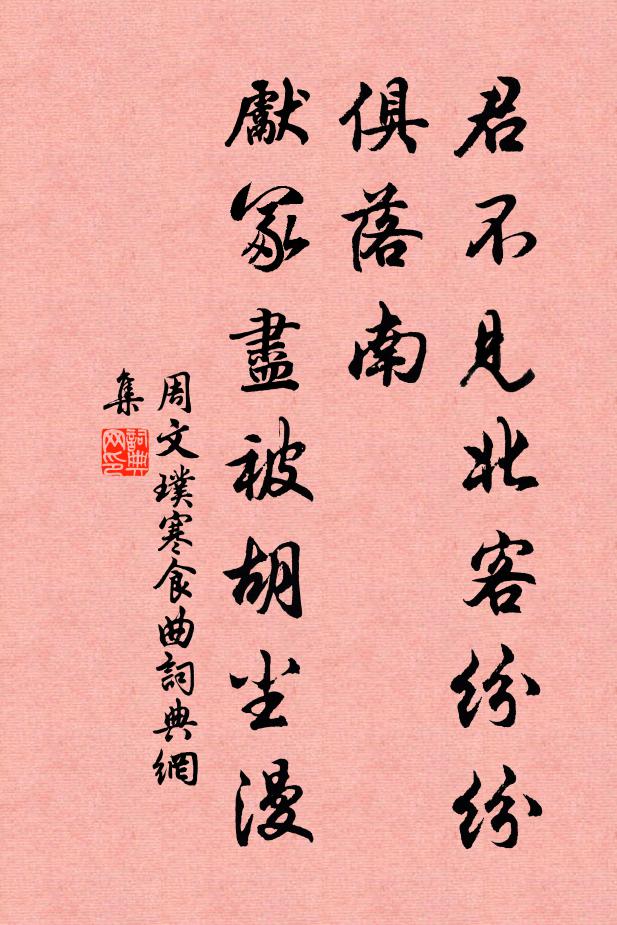 君不見北客紛紛
俱落南
獻冢盡被胡尘漫
周文璞寒食曲詞典網
集
詞典
网印